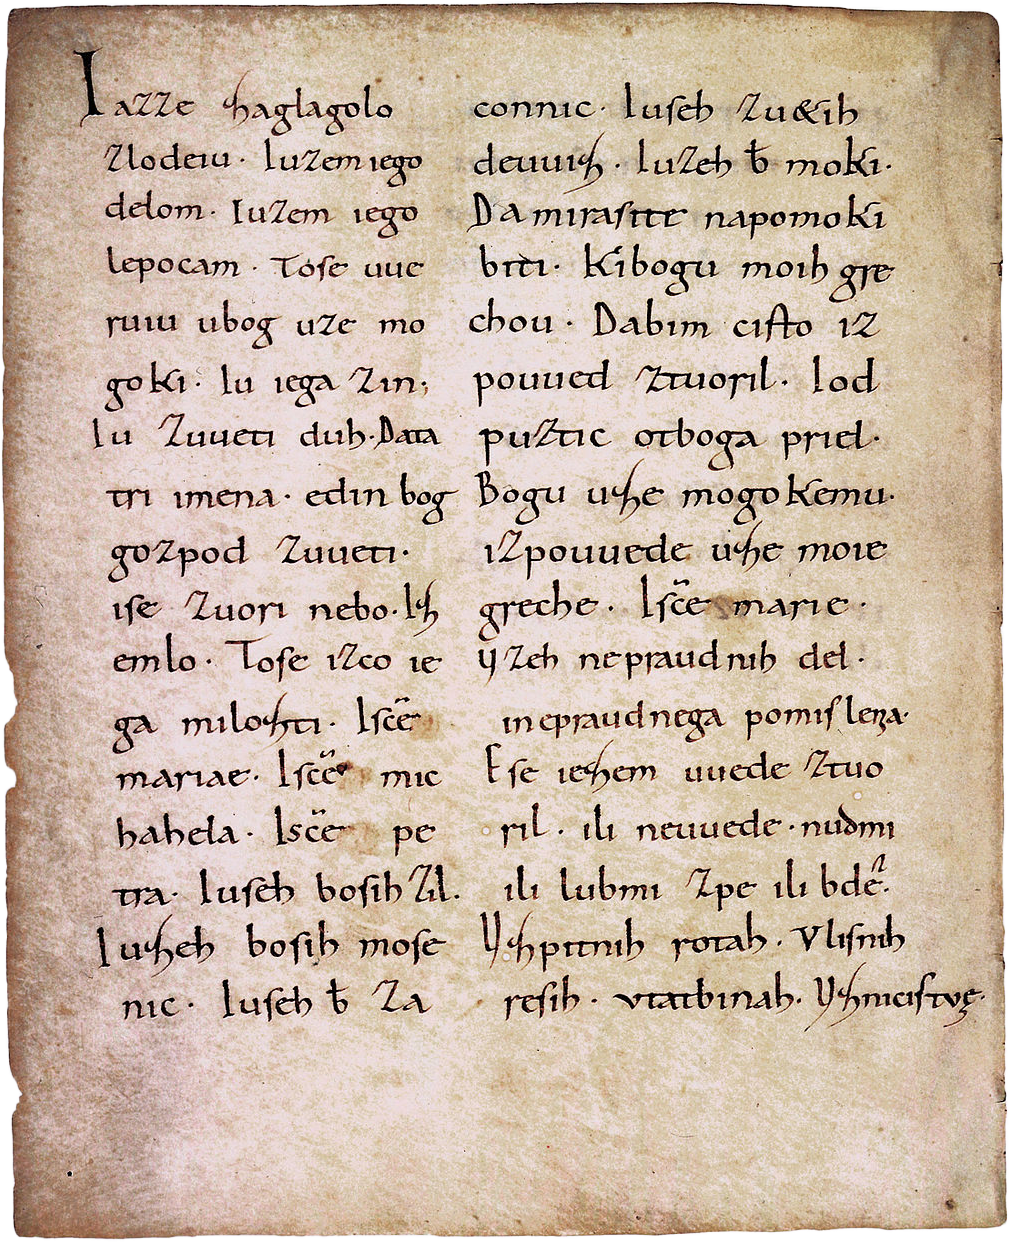 Iazze zaglagolo
zlodeiu · Iuzem iego
delom · Iuzem iego
lepocam · Tose uue
ruiu ubog uze mo
goki · Iu iega zin;
Iu zuueti duh · Data
tri imena · edin bog
gozpod zuueti ·
ise zuori nebo · Iz
emlo · Tose izco ie
ga milozti · Isc̃e
mariae · Isc̃e mic
hahela · Isc̃e pe
tra · Iuseh bosih zil.
Iuzeh bosih mose
nic · Iuseh ƀ za
connic · Iuseh zu&ih
deuuiz · Iuzeh ƀ moki ·
Da mirastte napomoki
biti · Kibogu moih gre
chou · Dabim cisto iz
pouued ztuoril · Iod
puztic otboga priel ·
Bogu uze mogokemu ·
izpouuede uze moie
greche · Isc̃e marie ·
Vzeh nepraudnih del ·
inepraudnega pomislena ·
Ese iezem uuede ztuo
ril · ili neuuede · nudmi
ili lubmi zpe ili bde ·
Vzpitnih rotah · Vlisnih
resih · vtatbinah · Vznicistve ·